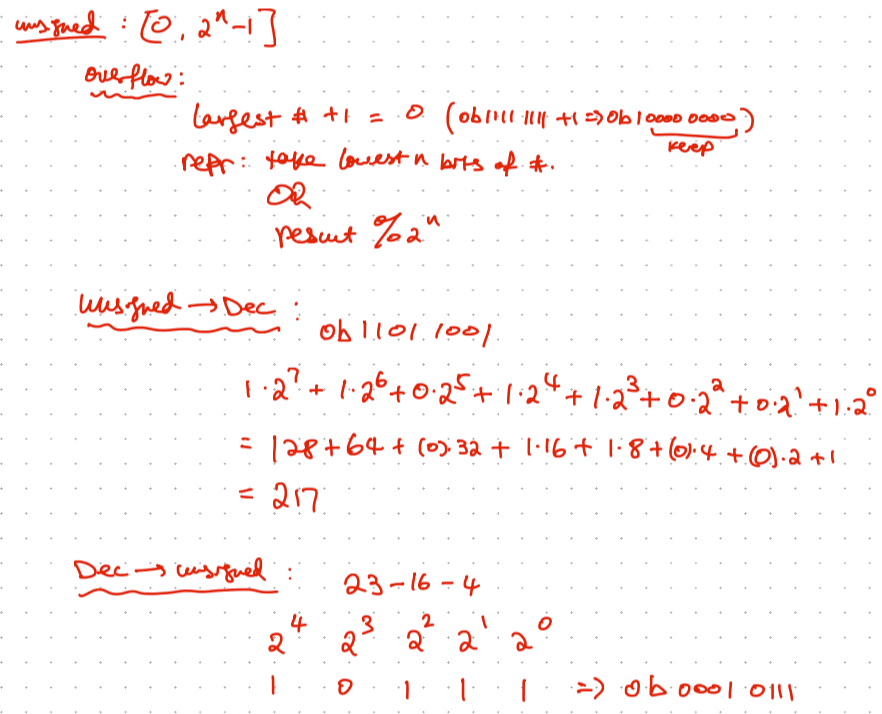 unsigned : [0, 2ⁿ-1]
overflow:
largest # +1 = 0 (0b1111 1111 +1 => 0b10000 0000)
keep
repr: take lowest n bits of #.
OR
result % 2ⁿ
unsigned → Dec :
0b 1101 1001
1·2⁷ + 1·2⁶ + 0·2⁵ + 1·2⁴ + 1·2³ + 0·2² + 0·2¹ + 1·2⁰
= 128 + 64 + (0)·32 + 1·16 + 1·8 + (0)·4 + (0)·2 + 1
= 217
Dec → unsigned :
23 - 16 - 4
2⁴ 2³ 2² 2¹ 2⁰
1 0 1 1 1 => 0b 0001 0111